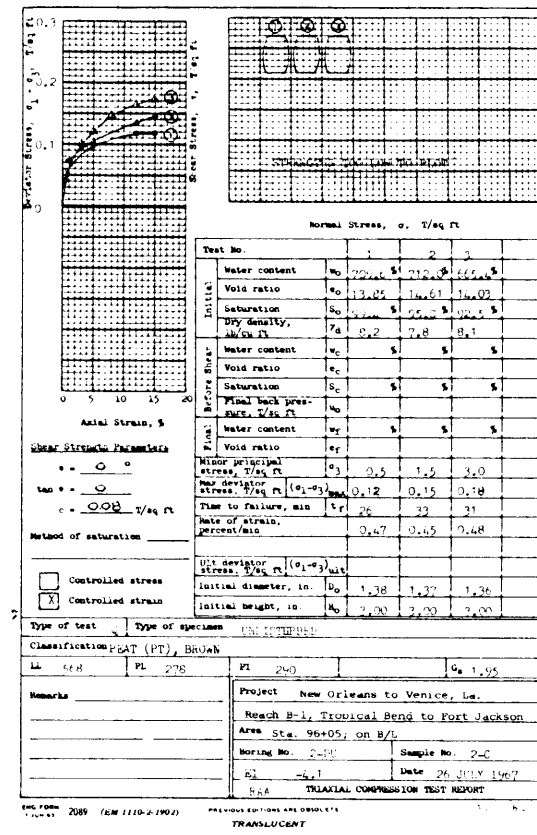 0.3
0.2
0.1
0
Deviator Stress, σ1 - σ3, T/sq ft
Shear Stress, τ, T/sq ft
0 5 10 15 20
Axial Strain, %
STRENGTHS TOO LOW TO PLOT
Normal Stress, σ, T/sq ft
Shear Strength Parameters
= 0 °
tan = 0
c = 0.08 T/sq ft
Method of saturation
Controlled stress
X Controlled strain
Test No. 1 2 3
Initial
Water content wo % 712.0% 665.4%
Void ratio eo 13.85 14.61 14.03
Saturation So % % 92.5%
Dry density, lb/cu ft γd 8.2 7.8 8.1
Before Shear
Water content wc % % %
Void ratio ec
Saturation Sc % % %
Final back pressure, T/sq ft uo
Final
Water content wf % % %
Void ratio ef
Minor principal stress, T/sq ft σ3 0.5 1.5 3.0
Max deviator stress, T/sq ft (σ1-σ3)max 0.12 0.15 0.18
Time to failure, min tf 26 33 31
Rate of strain, percent/min 0.47 0.45 0.48
Ult deviator stress, T/sq ft (σ1-σ3)ult
Initial diameter, in. Do 1.38 1.37 1.36
Initial height, in. Ho 3.00 3.00 3.00
Type of test Type of specimen UNDISTURBED
Classification PEAT (PT), BROWN
LL 568 PL 278 PI 290 Gs 1.95
Remarks
Project New Orleans to Venice, La.
Reach B-1, Tropical Bend to Fort Jackson
Area Sta. 96+05; on B/L
Boring No. Sample No. 2-C
El -4.1 Date 26 JULY 1967
TRIAXIAL COMPRESSION TEST REPORT
ENG FORM 2089 (EM 1110-2-1902) PREVIOUS EDITIONS ARE OBSOLETE
TRANSLUCENT